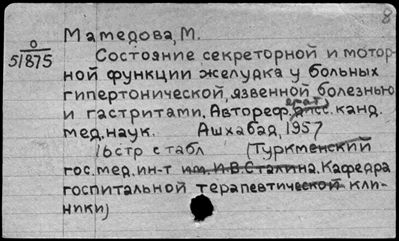 8
Мамедова, М.
О
51875
Состояние секреторной и мотор-
ной функции желудка у больных
гипертонической, язвенной болезнью
и гастритами. Автореф. дисс. канд.
мед. наук. Ашхабад, 1957
16стр с табл (Туркменский
гос. мед. ин-т им. И.В. Сталина. Кафедра
госпитальной терапевтической кли-
ники)